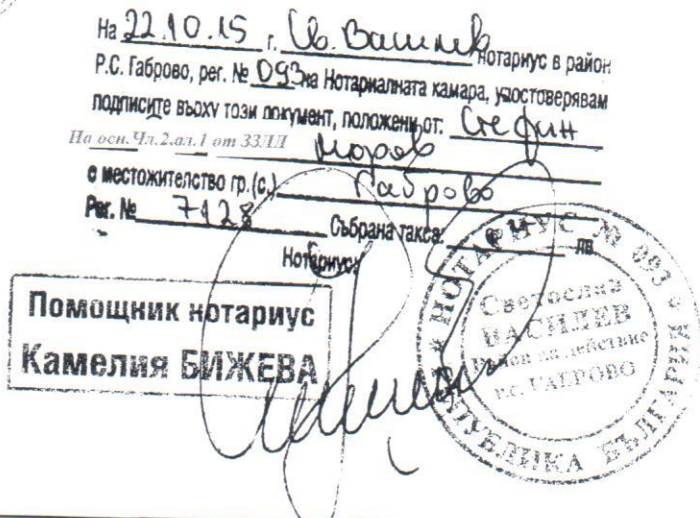 На 22.10.15 г. Св. Василев нотариус в район
Р.С. Габрово, рег. № 093 на Нотариалната камара, удостоверявам
подписите върху този документ, положени от: Стефан
На осн.Чл.2.ал.1 от ЗЗЛД
Моров
с местожителство гр.(с.) Габрово
Рег. № 7128 Събрана такса: лв
Нотариус:
Помощник нотариус
Камелия БИЖЕВА
НОТАРИУС № 093
РЕПУБЛИКА БЪЛГАРИЯ
Светослав
ВАСИЛЕВ
Район на действие
р.с. ГАБРОВО